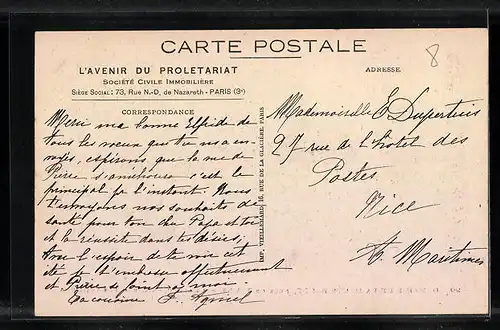 CARTE POSTALE
8
L'AVENIR DU PROLETARIAT
SOCIÉTÉ CIVILE IMMOBILIÈRE
SIÈGE SOCIAL: 73, Rue N.-D. de Nazareth - PARIS (3e)
ADRESSE
CORRESPONDANCE
Merci ma bonne Elfride de
tous les vœux que tu as en-
voyés, espérons que la vue de
Pierre s'améliorera c'est le
principal pr l'instant. Nous
t'envoyons nos souhaits de
santé pour ton cher Papa et toi
et la réussite dans tes désirs,
Avec l'espoir de te voir cet
été je t'embrasse affectueusement
et Pierre se joint à moi.
Ta cousine
IMP. VIEILLEMARD, 16, RUE DE LA GLACIÈRE, PARIS
Mademoiselle E. Dupertuis
27 rue de l'hotel des
Postes
Nice
A. Maritimes